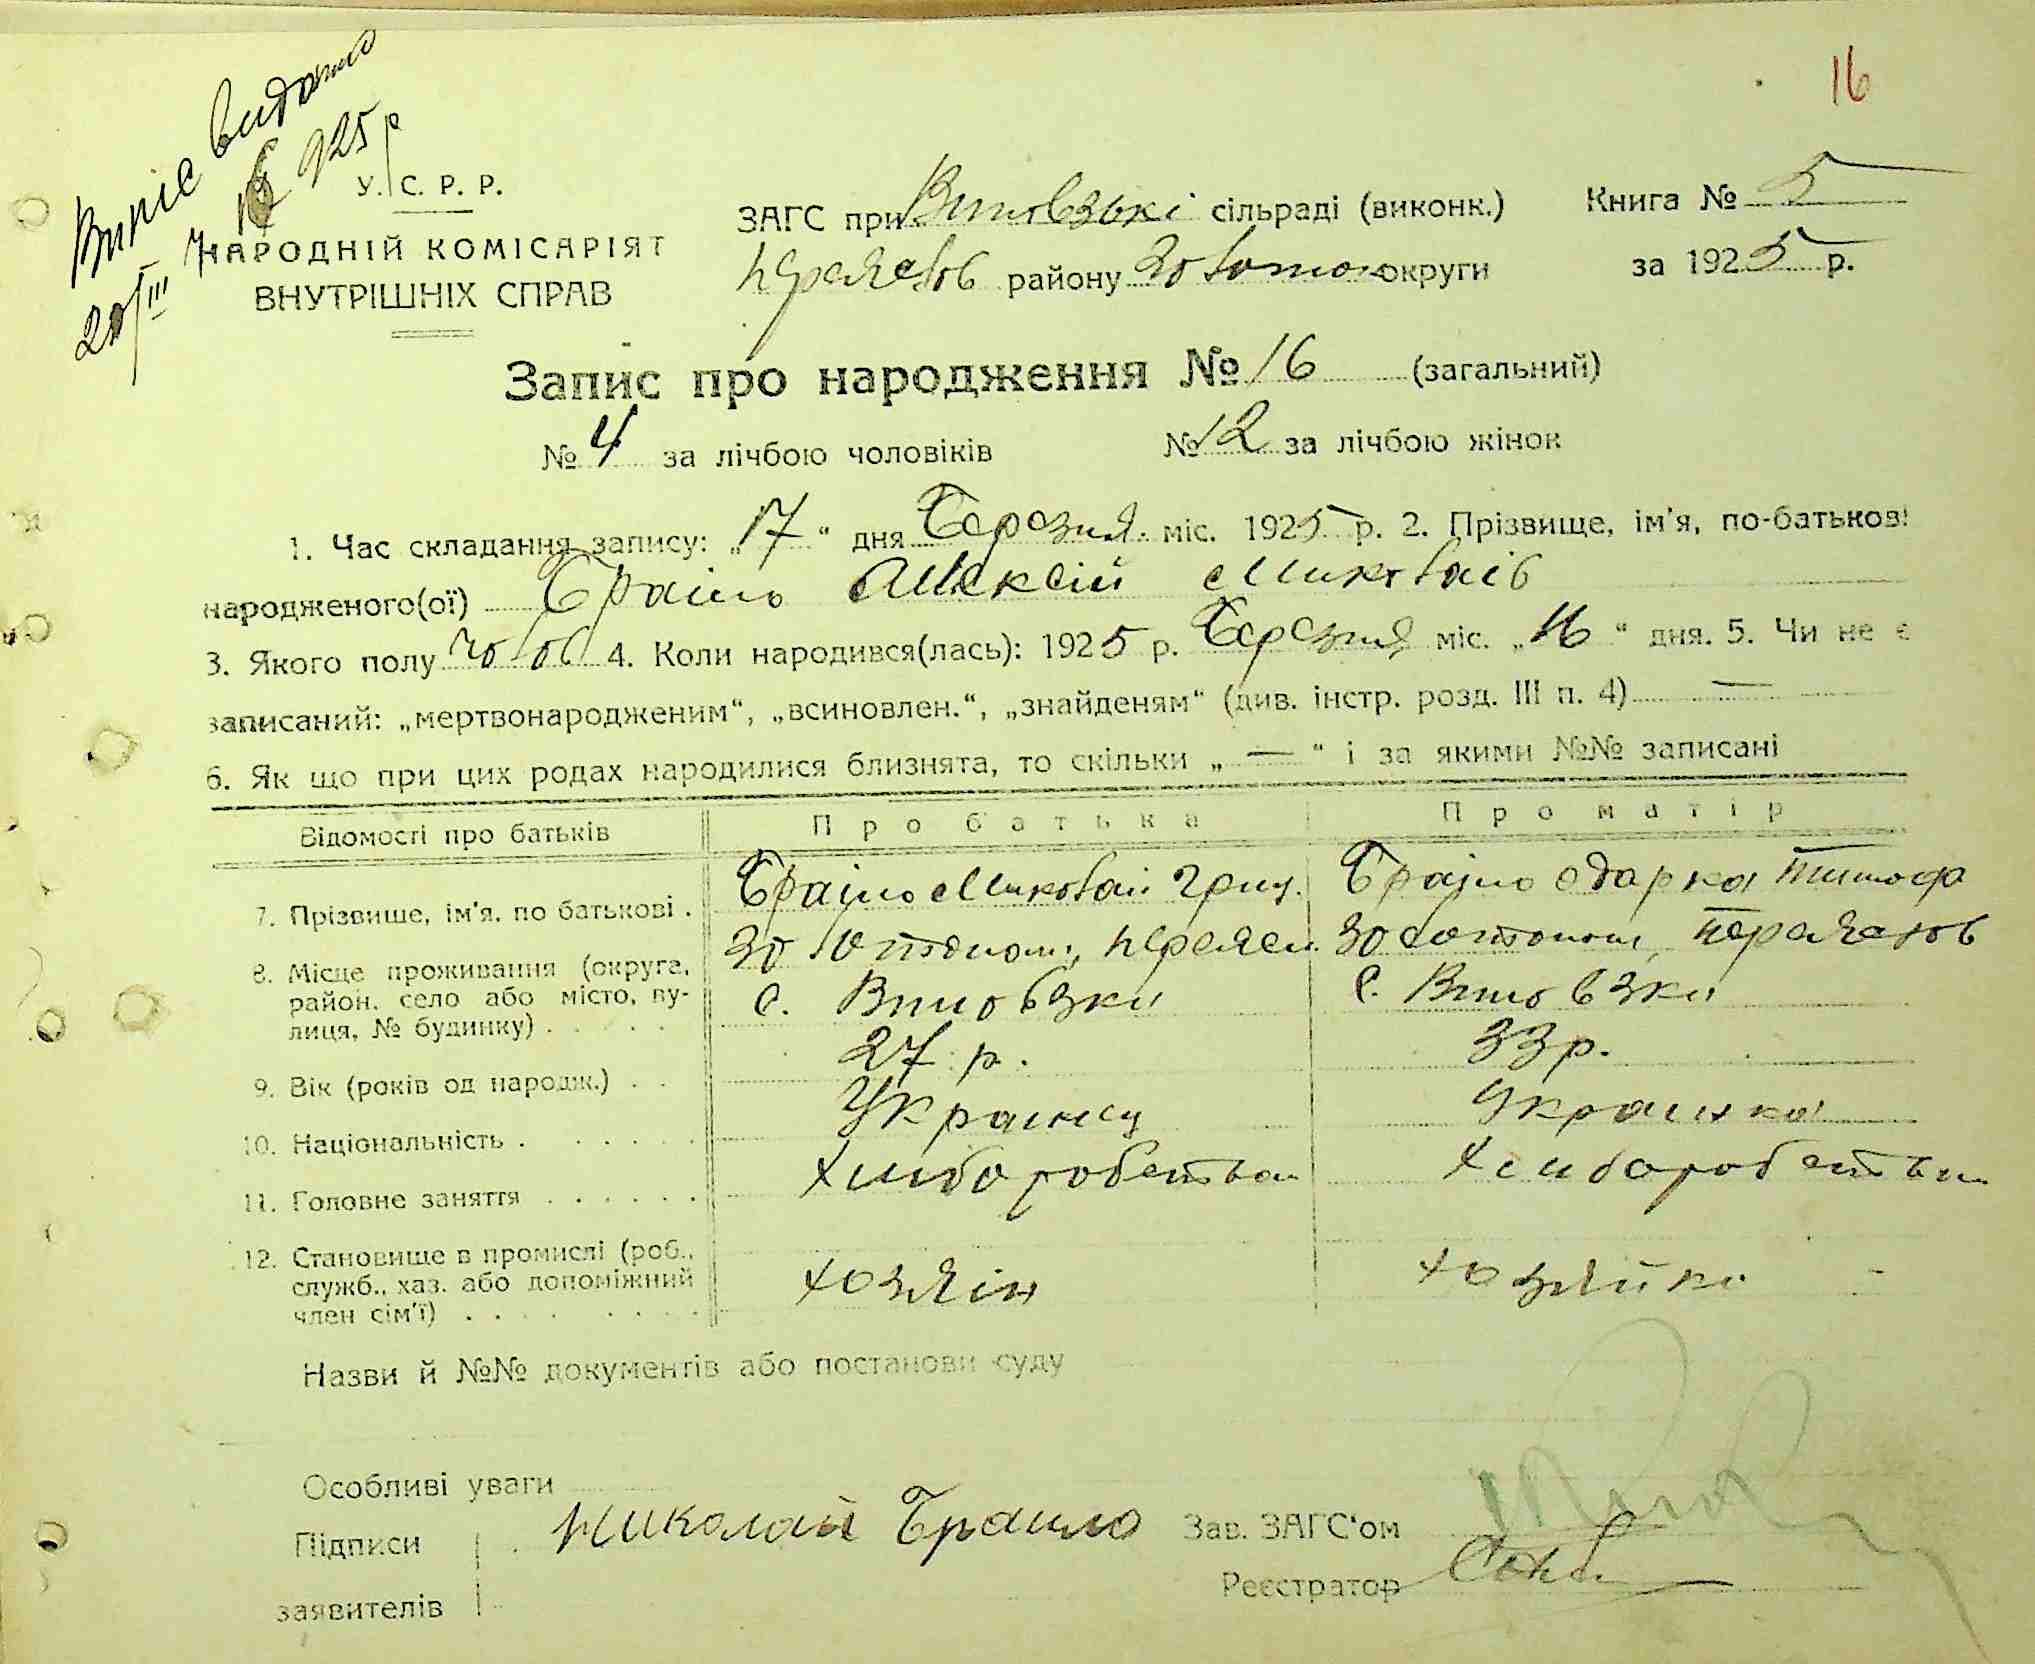 16
Випіс видано
20/III 925 р
У. С. Р. Р.
НАРОДНІЙ КОМІСАРІЯТ
ВНУТРІШНІХ СПРАВ
ЗАГС при сільраді (виконк.)
Книга № 5
району Золотон округи
за 1925 р.
Запис про народження № 16 (загальний)
№ 4 за лічбою чоловіків № 12 за лічбою жінок
1. Час складання запису: „17“ дня Березня міс. 1925 р. 2. Прізвище, ім'я, по-батькові
народженого(ої) Браїло Алексій Миколаів
3. Якого полу чолов 4. Коли народився(лась): 1925 р. Березня міс. „16“ дня. 5. Чи не є
записаний: „мертвонародженим“, „всиновлен.“, „знайденям“ (див. інстр. розд. III п. 4) —
6. Як що при цих родах народилися близнята, то скільки „ — “ і за якими №№ записані
Відомості про батьків Про батька Про матір
7. Прізвище, ім'я, по батькові . Браїло Миколай Григ. Браїло Одарка Тимоф
8. Місце проживання (округа, район, село або місто, вулиця, № будинку) . . . . .
с. Виповзки с. Виповзки
9. Вік (років од народж.) . . 27 р. 33 р.
10. Національність . . . . . . Українец Українка
11. Головне заняття . . . . . . Хлиборобство Хлиборобство
12. Становище в промислі (роб.,
служб., хаз. або допоміжний
член сім'ї) . . . . . . . . Хозяін Хозяйка
Назви й №№ документів або постанови суду
Особливі уваги
Підписи
заявителів
Николай Браило
Зав. ЗАГС'ом
Реєстратор